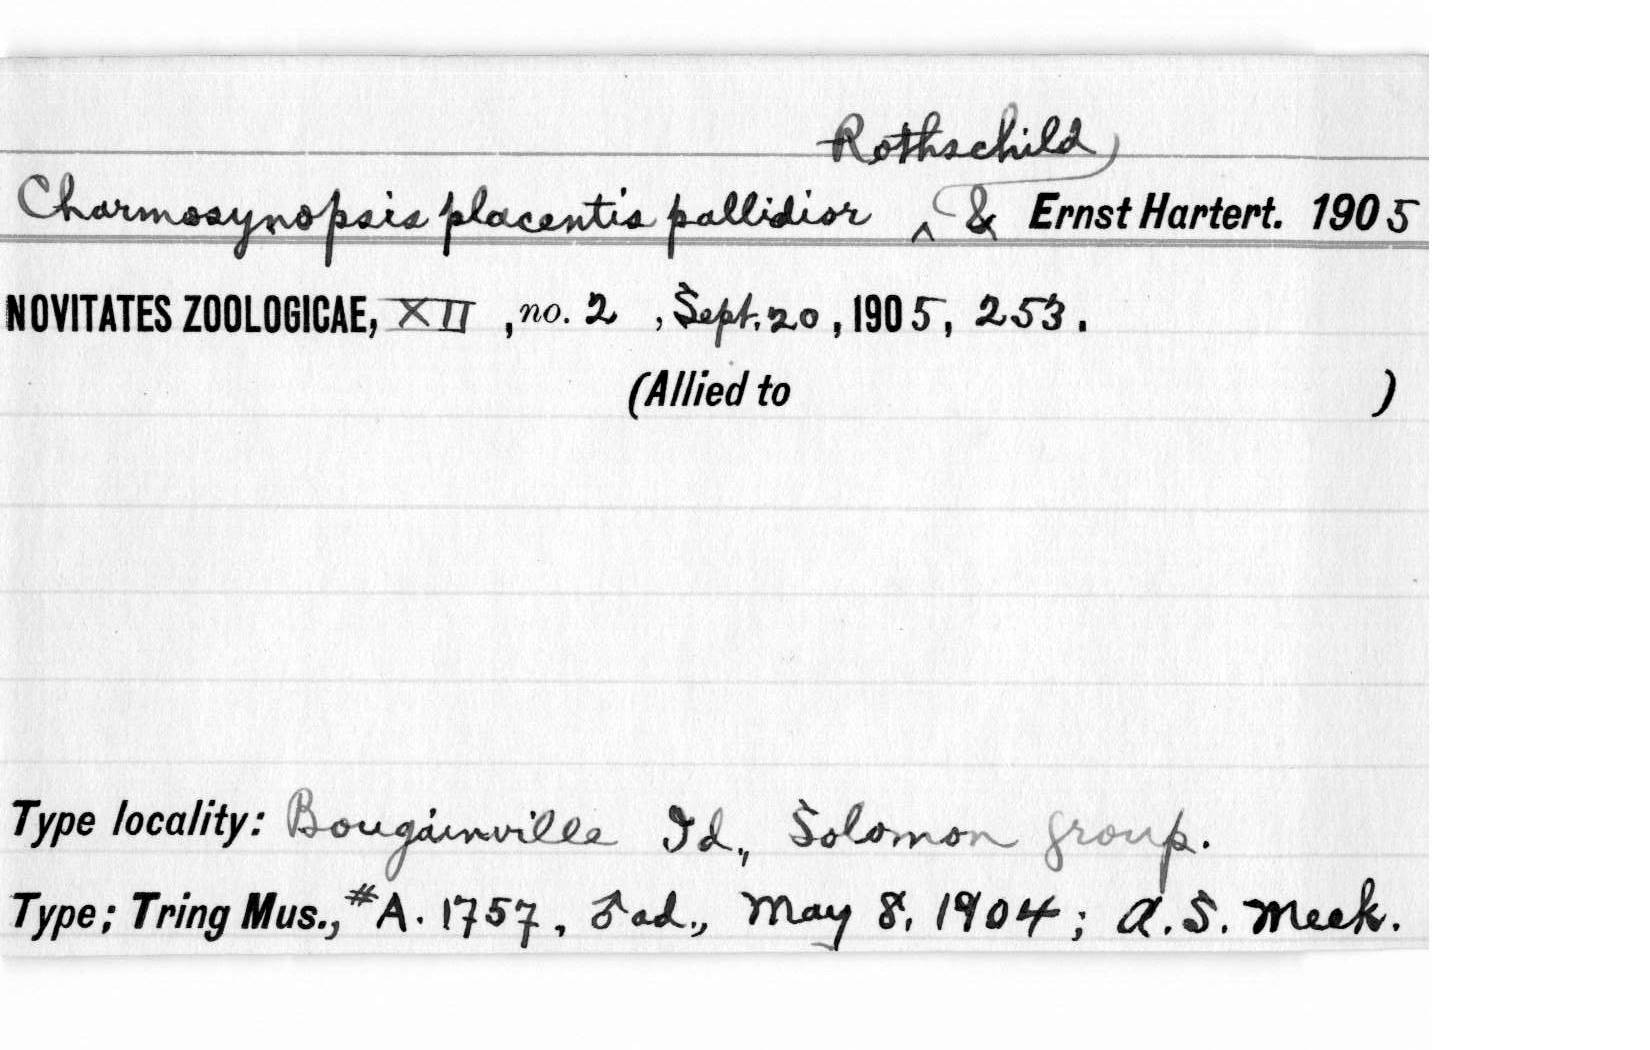 Rothschild
Charmosynopsis placentis pallidior ^ & Ernst Hartert. 1905
NOVITATES ZOOLOGICAE, XII, no. 2, Sept. 20, 1905, 253.
(Allied to )
Type locality: Bougainville Id., Solomon group.
Type; Tring Mus., #A. 1757, ♂ ad., May 8, 1904; A.S. Meek.